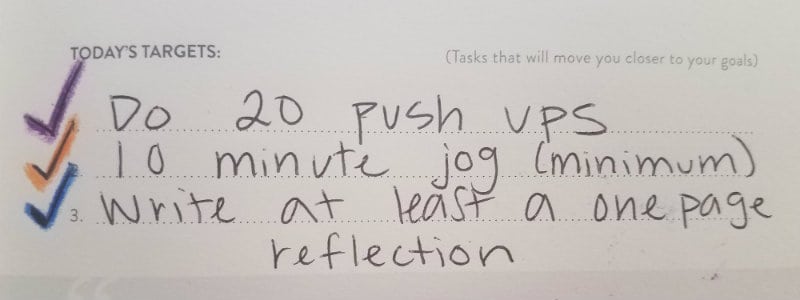 TODAY'S TARGETS:
(Tasks that will move you closer to your goals)
Do 20 push ups
2. 10 minute jog (minimum)
3. Write at least a one page
reflection